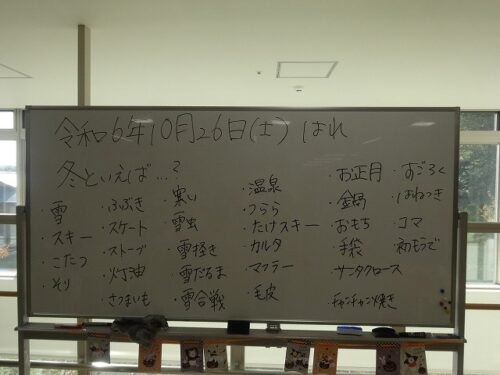 令和6年10月26日(土) はれ
冬といえば…?
・雪
・スキー
・こたつ
・そり
・ふぶき
・スケート
・ストーブ
・灯油
・さつまいも
・寒い
・雪虫
・雪掻き
・雪だるま
・雪合戦
・温泉
・つらら
・たけスキー
・カルタ
・マフラー
・毛皮
・お正月
・金鍋
・おもち
・手袋
・サンタクロース
・チャンチャン焼き
・すごろく
・はねつき
・コマ
・初もうで